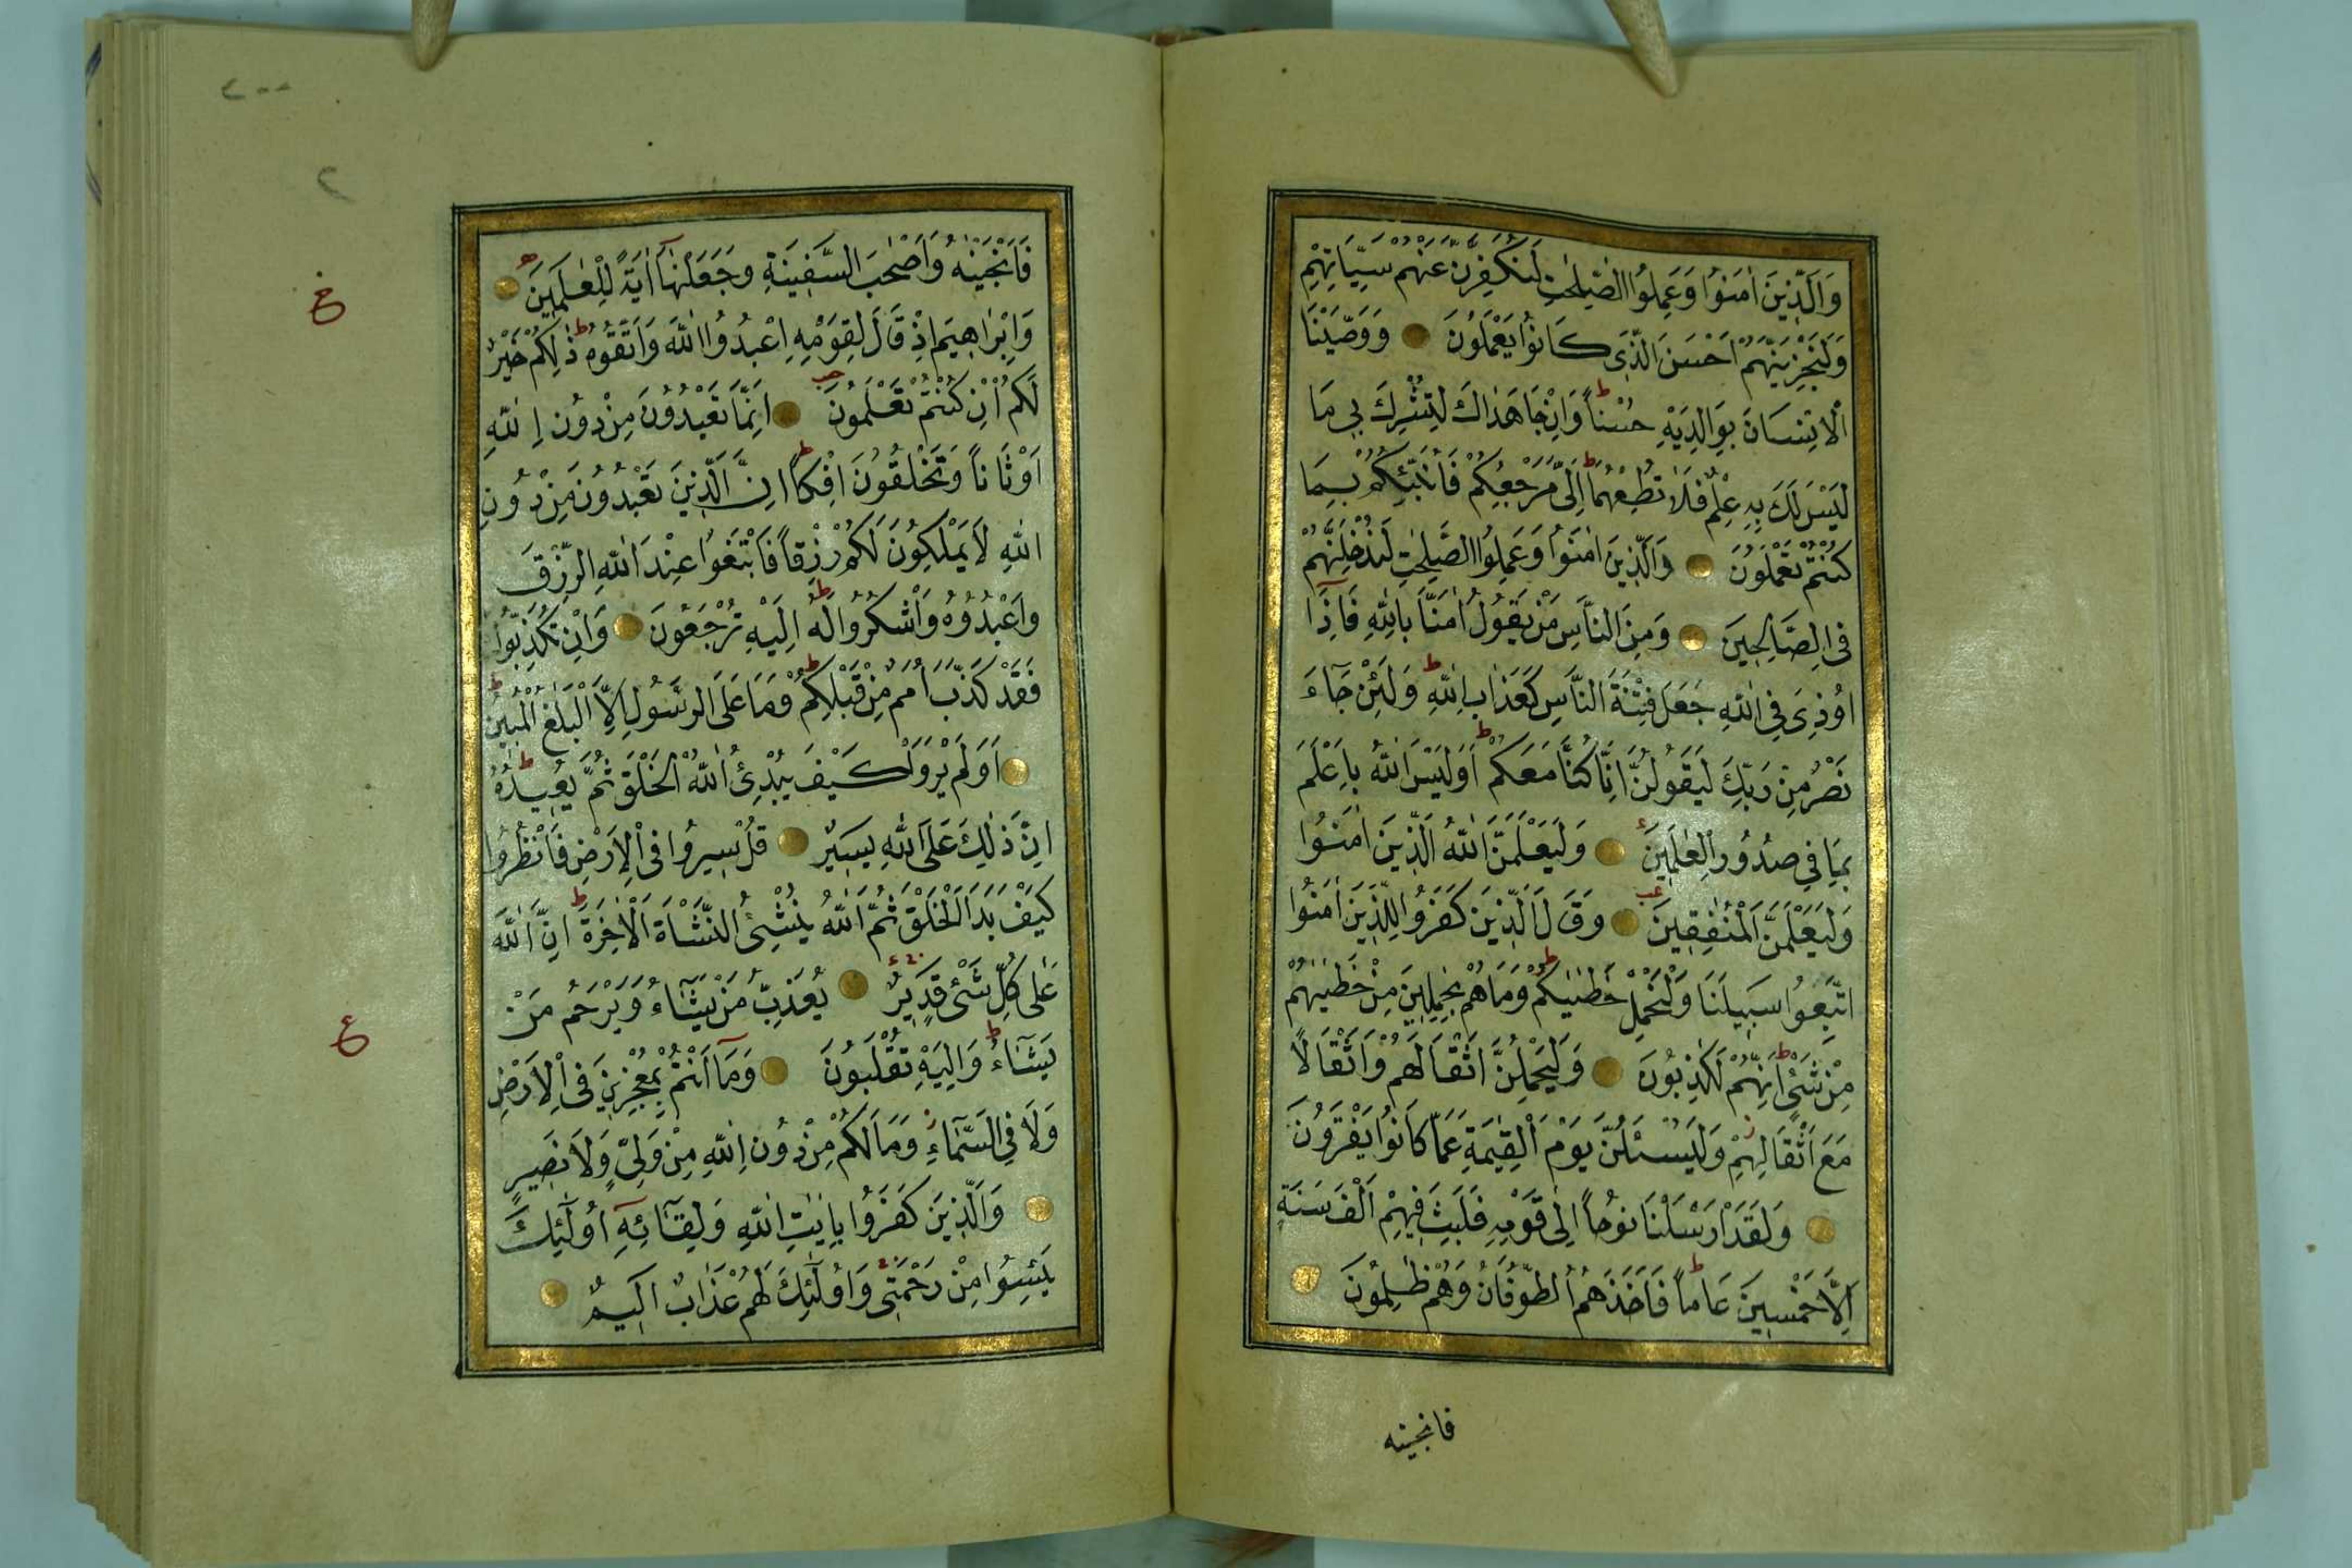 وَالَّذِينَ اٰمَنُوا وَعَمِلُوا الصّٰلِحٰتِ لَنُكَفِّرَنَّ عَنْهُمْ سَيِّاٰتِهِمْ
وَلَنَجْزِيَنَّهُمْ اَحْسَنَ الَّذٖى كَانُوا يَعْمَلُونَ وَوَصَّيْنَا
الْاِنْسَانَ بِوَالِدَيْهِ حُسْناً ط وَاِنْ جَاهَدَاكَ لِتُشْرِكَ بٖى مَا
لَيْسَ لَكَ بِهٖ عِلْمٌ فَلَا تُطِعْهُمَا ط اِلَيَّ مَرْجِعُكُمْ فَاُنَبِّئُكُمْ بِمَا
كُنْتُمْ تَعْمَلُونَ وَالَّذِينَ اٰمَنُوا وَعَمِلُوا الصّٰلِحٰتِ لَنُدْخِلَنَّهُمْ
فِى الصَّالِحِينَ وَمِنَ النَّاسِ مَنْ يَقُولُ اٰمَنَّا بِاللّٰهِ فَاِذَا
اُوذِىَ فِى اللّٰهِ جَعَلَ فِتْنَةَ النَّاسِ كَعَذَابِ اللّٰهِ ط وَلَئِنْ جَاءَ
نَصْرٌ مِنْ رَبِّكَ لَيَقُولُنَّ اِنَّا كُنَّا مَعَكُمْ ط اَوَلَيْسَ اللّٰهُ بِاَعْلَمَ
بِمَا فِى صُدُورِ الْعٰلَمِينَ وَلَيَعْلَمَنَّ اللّٰهُ الَّذِينَ اٰمَنُوا
وَلَيَعْلَمَنَّ الْمُنٰفِقِينَ وَقَالَ الَّذِينَ كَفَرُوا لِلَّذِينَ اٰمَنُوا
اتَّبِعُوا سَبِيلَنَا وَلْنَحْمِلْ خَطٰيٰكُمْ ط وَمَا هُمْ بِحٰمِلِينَ مِنْ خَطٰيٰهُمْ
مِنْ شَىْءٍ ط اِنَّهُمْ لَكٰذِبُونَ وَلَيَحْمِلُنَّ اَثْقَالَهُمْ وَاَثْقَالًا
مَعَ اَثْقَالِهِمْ ز وَلَيُسْئَلُنَّ يَوْمَ الْقِيٰمَةِ عَمَّا كَانُوا يَفْتَرُونَ
وَلَقَدْ اَرْسَلْنَا نُوحاً اِلٰى قَوْمِهٖ فَلَبِثَ فِيهِمْ اَلْفَ سَنَةٍ
اِلَّا خَمْسِينَ عَاماً ط فَاَخَذَهُمُ الطُّوفَانُ وَهُمْ ظٰلِمُونَ
فانجينه
٤٠٠
٢
فَاَنْجَيْنٰهُ وَاَصْحٰبَ السَّفِينَةِ وَجَعَلْنٰهَا اٰيَةً لِلْعٰلَمِينَ
وَاِبْرٰاهِيمَ اِذْ قَالَ لِقَوْمِهِ اعْبُدُوا اللّٰهَ وَاتَّقُوهُ ط ذٰلِكُمْ خَيْرٌ
لَكُمْ اِنْ كُنْتُمْ تَعْلَمُونَ اِنَّمَا تَعْبُدُونَ مِنْ دُونِ اللّٰهِ
اَوْثَاناً وَتَخْلُقُونَ اِفْكاً ط اِنَّ الَّذِينَ تَعْبُدُونَ مِنْ دُونِ
اللّٰهِ لَا يَمْلِكُونَ لَكُمْ رِزْقاً فَابْتَغُوا عِنْدَ اللّٰهِ الرِّزْقَ
وَاعْبُدُوهُ وَاشْكُرُوا لَهُ ط اِلَيْهِ تُرْجَعُونَ وَاِنْ تُكَذِّبُوا
فَقَدْ كَذَّبَ اُمَمٌ مِنْ قَبْلِكُمْ ط وَمَا عَلَى الرَّسُولِ اِلَّا الْبَلٰغُ الْمُبِينُ ط
اَوَلَمْ يَرَوْا كَيْفَ يُبْدِئُ اللّٰهُ الْخَلْقَ ثُمَّ يُعِيدُهُ ط
اِنَّ ذٰلِكَ عَلَى اللّٰهِ يَسِيرٌ قُلْ سِيرُوا فِى الْاَرْضِ فَانْظُرُوا
كَيْفَ بَدَاَ الْخَلْقَ ثُمَّ اللّٰهُ يُنْشِئُ النَّشْاَةَ الْاٰخِرَةَ ط اِنَّ اللّٰهَ
عَلٰى كُلِّ شَىْءٍ قَدِيرٌ يُعَذِّبُ مَنْ يَشَاءُ وَيَرْحَمُ مَنْ
يَشَاءُ ط وَاِلَيْهِ تُقْلَبُونَ وَمَا اَنْتُمْ بِمُعْجِزِينَ فِى الْاَرْضِ
وَلَا فِى السَّمَاءِ ز وَمَا لَكُمْ مِنْ دُونِ اللّٰهِ مِنْ وَلِيٍّ وَلَا نَصِيرٍ
وَالَّذِينَ كَفَرُوا بِاٰيٰتِ اللّٰهِ وَلِقَائِهٖ اُولٰئِكَ
يَئِسُوا مِنْ رَحْمَتٖى وَاُولٰئِكَ لَهُمْ عَذَابٌ اَلِيمٌ
ع